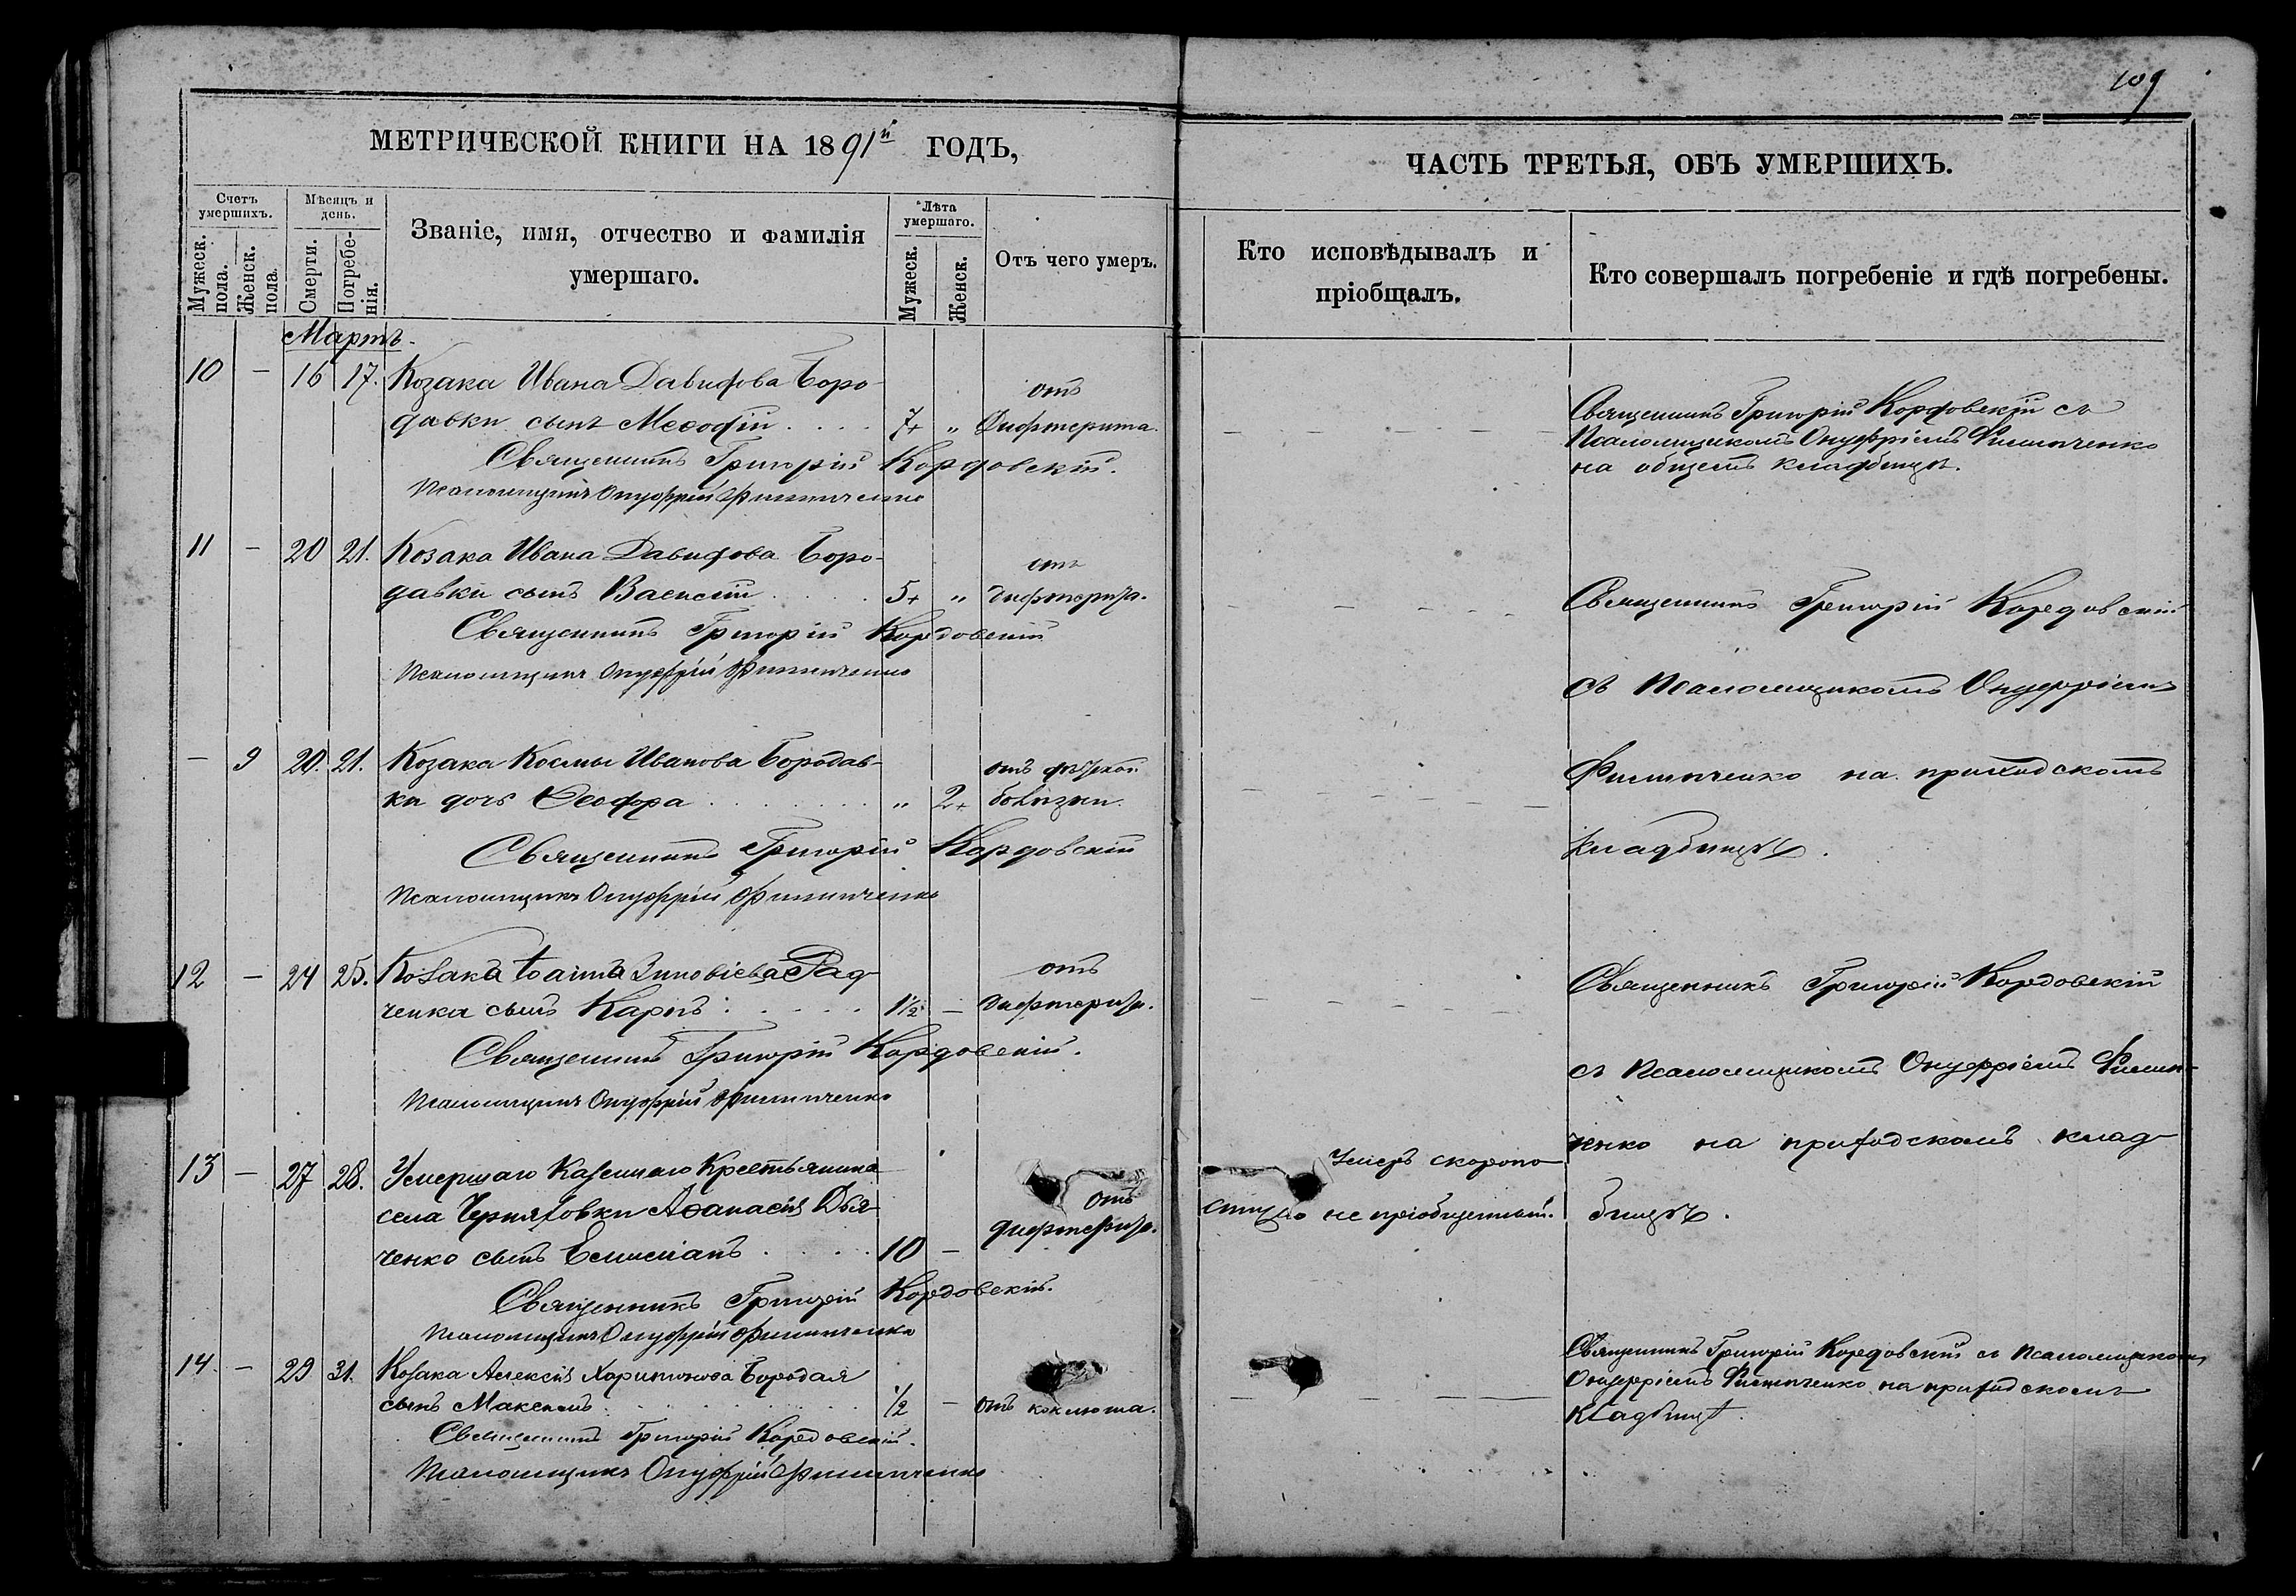 109
МЕТРИЧЕСКОЙ КНИГИ НА 1891й ГОДЪ,
ЧАСТЬ ТРЕТЬЯ, ОБЪ УМЕРШИХЪ.
Счетъ умершихъ.
Мѣсяцъ и день.
Званіе, имя, отчество и фамилія умершаго.
Лѣта умершаго.
Отъ чего умеръ.
Кто исповѣдывалъ и пріобщалъ.
Кто совершалъ погребеніе и гдѣ погребены.
Мужеск. пола.
Женск. пола.
Смерти.
Погребенія.
Мужеск.
Женск.
Мартъ.
10 — 16 17. Козака Ивана Давидова Боро-
давки сынъ Меѳодій . . . . 7 " отъ Дифтерита.
Священникъ Григорій Кордовскій.
Псаломщикъ Онуфрій Филипченко
Священникъ Григорій Кордовскій съ
Псаломщикомъ Онуфріемъ Филипченко
на общемъ кладбищѣ.
11 — 20 21. Козака Ивана Давидова Боро-
давки сынъ Василій . . . . 5 " отъ дифтерита.
Священникъ Григорій Кордовскій
Псаломщикъ Онуфрій Филипченко
Священникъ Григорій Кордовскій
съ Псаломщикомъ Онуфріемъ
— 9 20. 21. Козака Космы Иванова Бородав-
ки дочь Ѳеодора . . . . " 2 отъ дѣтской болѣзни.
Священникъ Григорій Кордовскій
Псаломщикъ Онуфрій Филипченко
Филипченко на приходскомъ
кладбищѣ.
12 — 24 25. Козака Іоанна Зиновіева Рад-
ченка сынъ Карпъ . . . . 1½ — отъ дифтерита.
Священникъ Григорій Кордовскій.
Псаломщикъ Онуфрій Филипченко
Священникъ Григорій Кордовскій
съ Псаломщикомъ Онуфріемъ Филип-
ченко на приходскомъ клад-
бищѣ.
13 — 27 28. Умершаго Казеннаго Крестьянина
села Черняховки Аѳанасія Дья-
ченко сынъ Емиліанъ . . . . 10 — отъ дифтерита.
Умеръ скоропо-
стижно не пріобщенный.
Священникъ Григорій Кордовскій.
Псаломщикъ Онуфрій Филипченко
14. — 29 31. Козака Алексія Харитонова Бородая
сынъ Максимъ . . . . ½ — отъ коклюша.
Священникъ Григорій Кордовскій.
Псаломщикъ Онуфрій Филипченко
Священникъ Григорій Кордовскій съ Псаломщикомъ
Онуфріемъ Филипченко на приходскомъ
кладбищѣ.